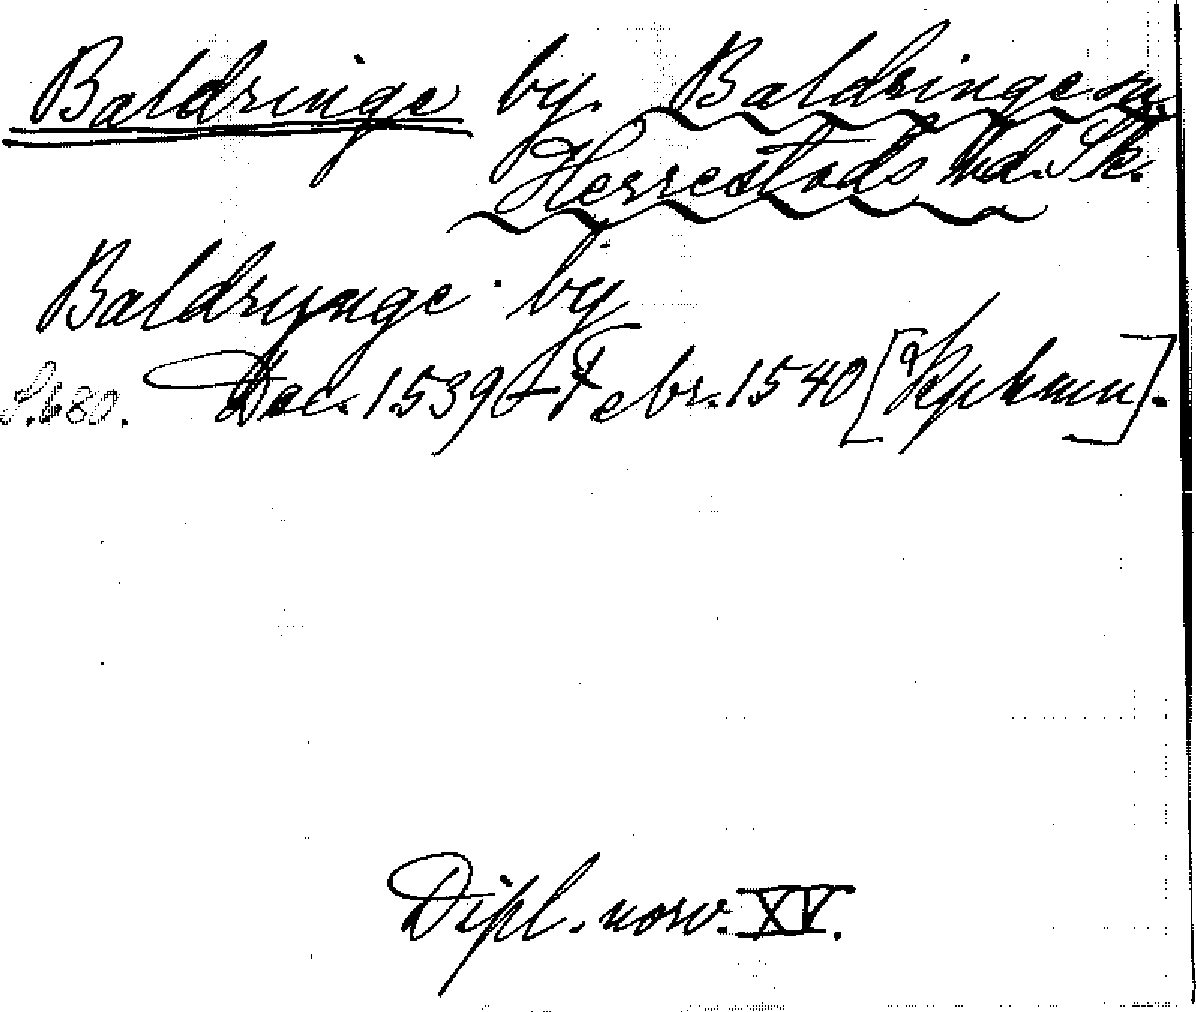 Baldringe by. Baldringe sn.
Herrestads hd. Sk.
Baldrynge by
S. 680. Dec. 1539 - Febr. 1540 [Kphmn].
Dipl. norv. XV.